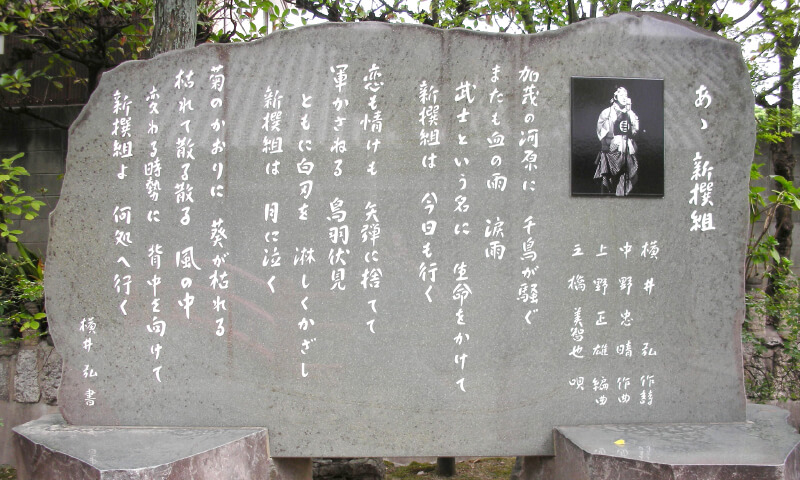 あゝ 新撰組
横井 弘 作詩
中野忠晴 作曲
上野正雄 編曲
三橋美智也 唄
加茂の河原に 千鳥が騒ぐ
またも血の雨 涙雨
武士という名に 生命をかけて
新撰組は 今日も行く
恋も情けも 矢弾に捨てて
軍かさねる 鳥羽伏見
ともに白刃を 淋しくかざし
新撰組は 月に泣く
菊のかおりに 葵が枯れる
枯れて散る散る 風の中
変わる時勢に 背中を向けて
新撰組よ 何処へ行く
横井弘 書